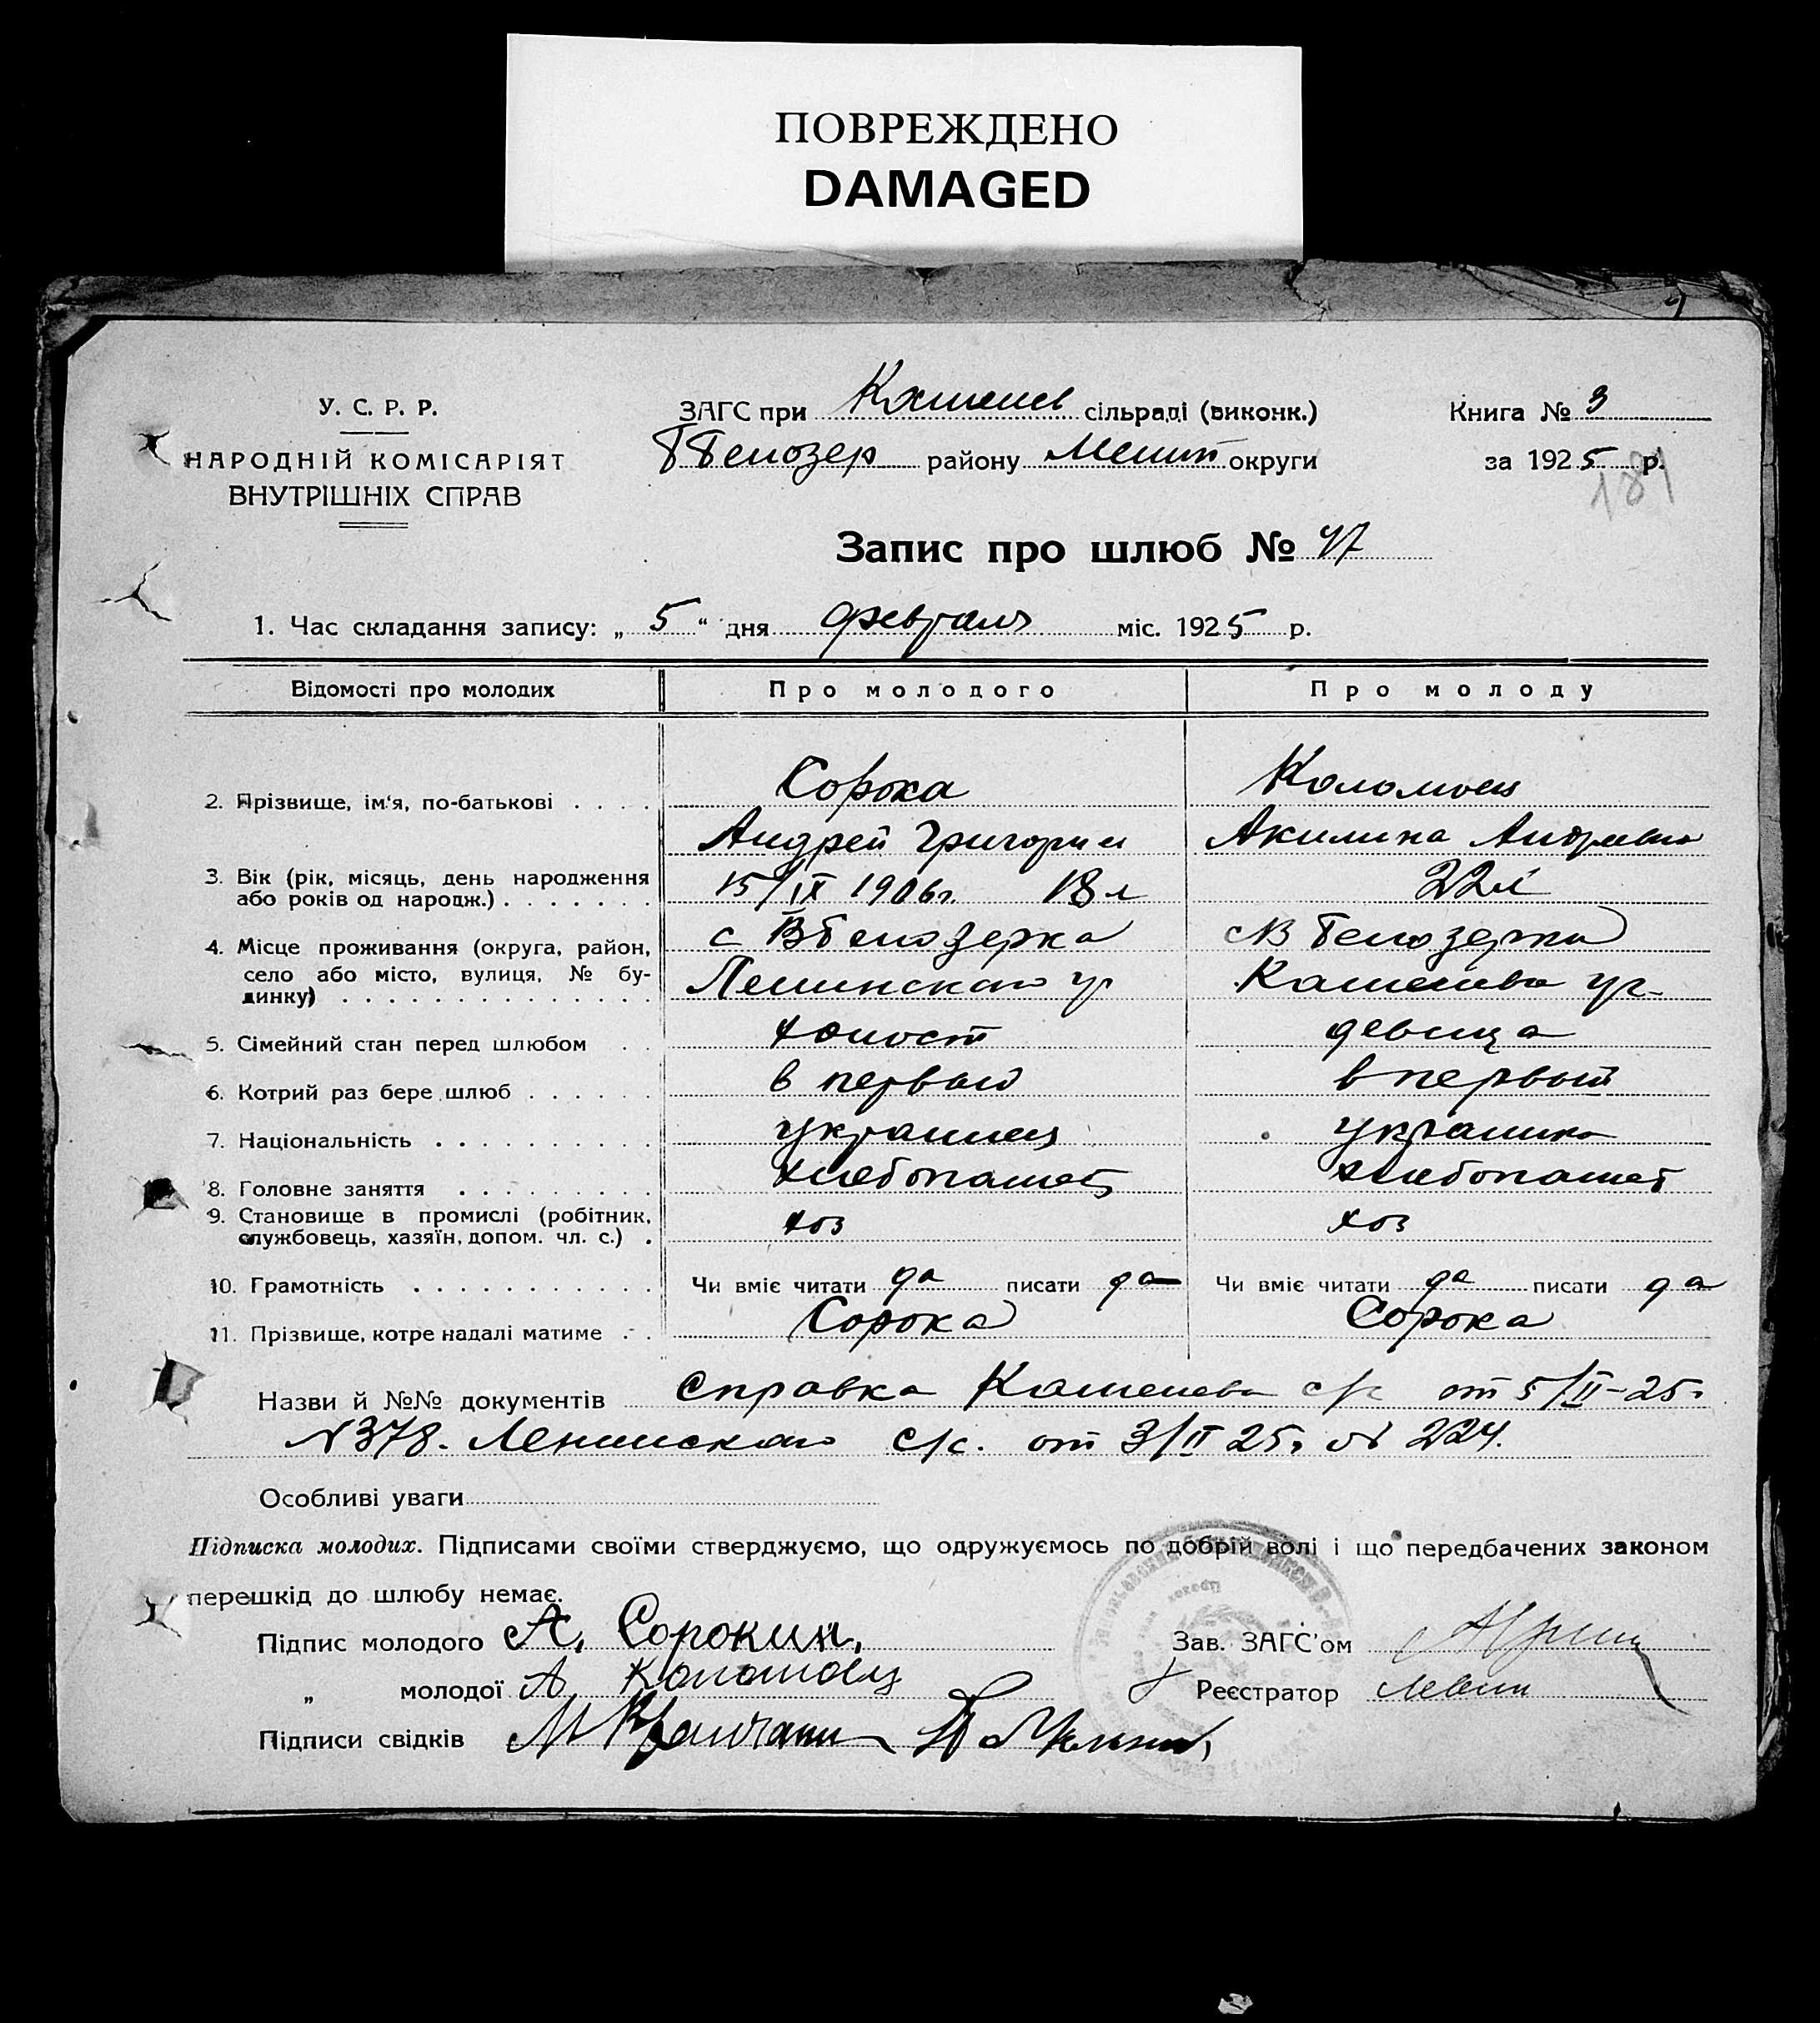 ПОВРЕЖДЕНО
DAMAGED
У. С. Р. Р.
НАРОДНІЙ КОМІСАРІЯТ
ВНУТРІШНІХ СПРАВ
ЗАГС при сільраді (виконк.)
района Мелит округи
Книга № 3
за 1925 р.
181
Запис про шлюб № 47
1. Час складання запису: „ 5 “ дня февраля міс. 1925 р.
Відомості про молодих Про молодого Про молоду
2. Прізвище, ім'я, по-батькові . . . . Сорока Коломоец
Андрей Григорьев Акилина Андреевна
3. Вік (рік, місяць, день народження
або років од народж.) . . . . . . . 15/IX 1906г. 18 л 22 л
4. Місце проживання (округа, район,
село або місто, вулиця, № бу-
динку) . . . . . . . . . . . . . .
с В Белозерка с В Белозерка
Ленинская ул Каменева ул.
5. Сімейний стан перед шлюбом . . холост девица
6. Котрий раз бере шлюб . . . . . . в первый в первый
7. Національність . . . . . . . . . . украинец украинка
8. Головне заняття . . . . . . . . . хлебопашец хлебопашец
9. Становище в промислі (робітник,
службовець, хазяїн, допом. чл. с.) . хоз хоз
10. Грамотність . . . . . . . . . . . Чи вміє читати да писати да Чи вміє читати да писати да
11. Прізвище, котре надалі матиме . . Сорока Сорока
Назви й №№ документів справка Каменева с/с от 5/II-25г
N 378. Ленинского с/с. от 3/II 25г N 224.
Особливі уваги
Підписка молодих. Підписами своїми стверджуємо, що одружуємось по добрій волі і що передбачених законом
перешкід до шлюбу немає.
Підпис молодого А. Сорокин.
„ молодої А Коломоец
Підписи свідків М
Зав. ЗАГС'ом
Реєстратор Левин